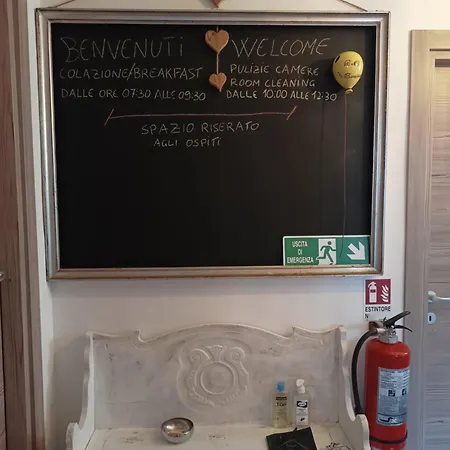 BENVENUTI
COLAZIONE/BREAKFAST
DALLE ORE 07:30 ALLE 09:30
WELCOME
PULIZIE CAMERE
ROOM CLEANING
DALLE 10.00 ALLE 12:30
SPAZIO RISERATO
AGLI OSPITI
USCITA
DI
EMERGENZA
ESTINTORE
N